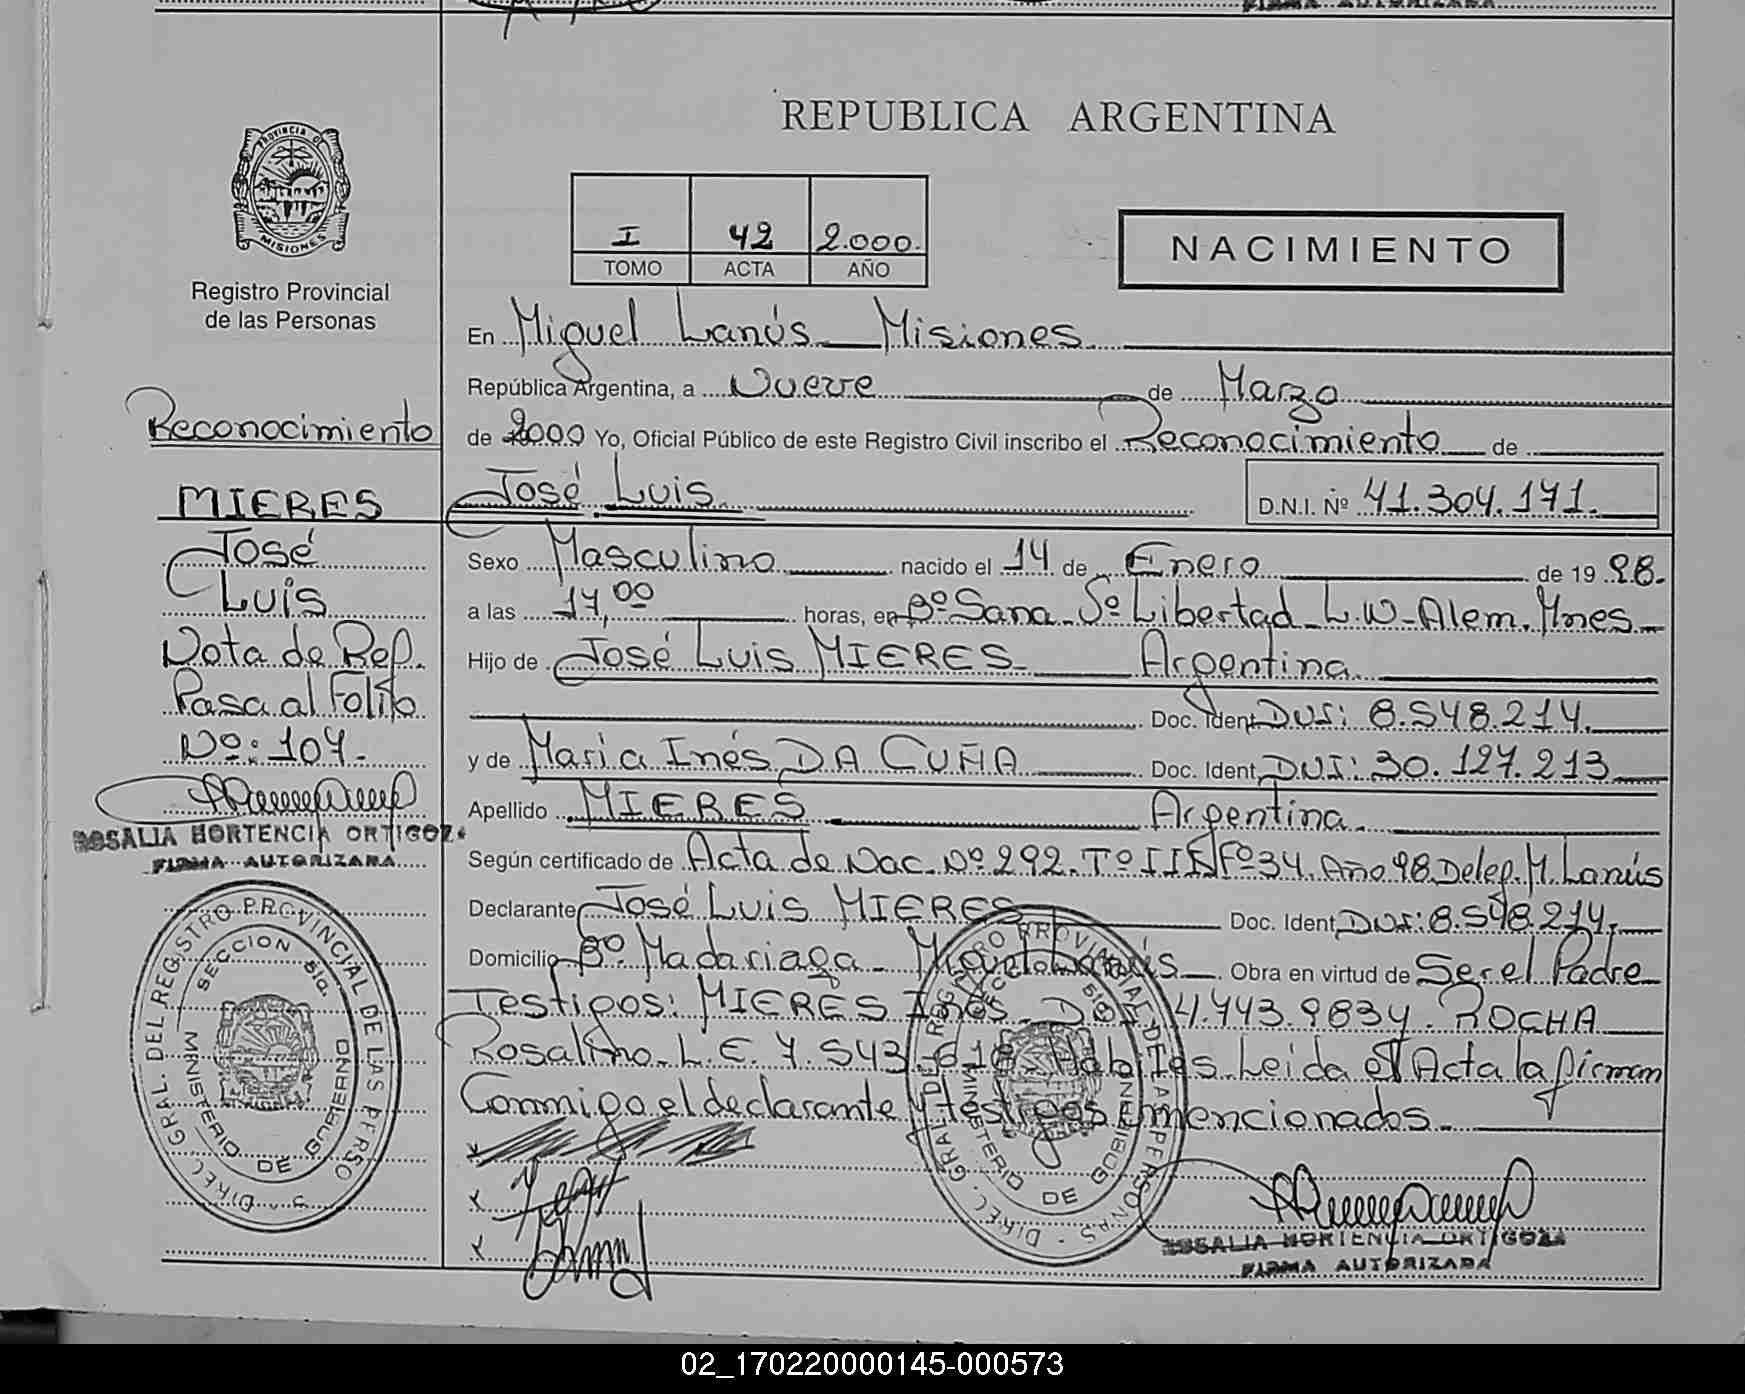 REPUBLICA ARGENTINA
PROVINCIA DE MISIONES
Registro Provincial
de las Personas
I 42 2.000.
TOMO ACTA AÑO
NACIMIENTO
En Miguel Lanús - Misiones
República Argentina, a Nueve de Marzo
de 2000 Yo, Oficial Público de este Registro Civil inscribo el Reconocimiento de
José Luis D.N.I. Nº 41.304.171.
Sexo Masculino nacido el 14 de Enero de 19 98.
a las 17,00 horas, en Bº Sana - Sº Libertad - L.N-Alem. Mnes
Hijo de José Luis MIERES - Argentina
Doc. Ident DUI: 8.548.214.
y de Maria Inés DA CUÑA Doc. Ident DUI: 30.127.213
Apellido MIERES Argentina
Según certificado de Acta de Nac. Nº 292. Tº III Fº 34. Año 98 Deleg. M. Lanús
Declarante José Luis MIERES Doc. Ident DUI: 8.548.214.
Domicilio Bº Madariaga - Miguel Lanús Obra en virtud de Ser el Padre
Testigos: MIERES Inés ROCHA
Rosalino - L.E. 7.543 Habiles Leida el Acta la firman
Conmigo el declarante y testigos mencionados.
ROSALIA HORTENCIA ORTIGOZA
FIRMA AUTORIZADA
Reconocimiento
MIERES
José
Luis
Nota de Ref.
Pasa al Folio
Nº: 107.
ROSALIA HORTENCIA ORTIGOZA
FIRMA AUTORIZADA
DIREC. GRAL. DEL REGISTRO PROVINCIAL DE LAS PERSONAS
SECCION 51a.
MINISTERIO DE GOBIERNO
DIREC. GRAL. DEL REGISTRO PROVINCIAL DE LAS PERSONAS
SECCION 51a.
MINISTERIO DE GOBIERNO
02_170220000145-000573